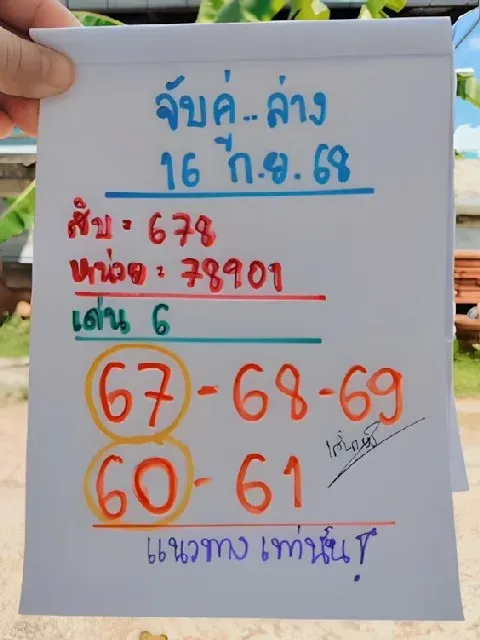 จับคู่..ล่าง
16 ก.ย.68
สิบ = 678
หน่วย = 78901
เด่น 6
67 - 68 - 69
60 - 61
แนวทาง เท่านั้น!